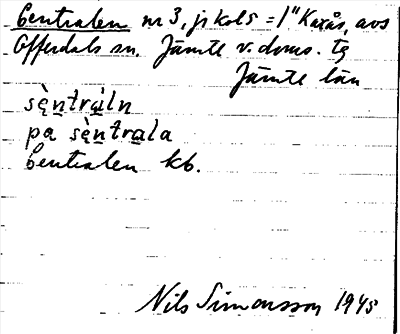 Centralen nr 3, jr kols = 1" Kaxås, avs
Offerdals sn. Jämtl. v. doms. tg
Jämtl. län
sèntràln
pa sèntrala
Centralen kb.
Nils Simonsson 1945